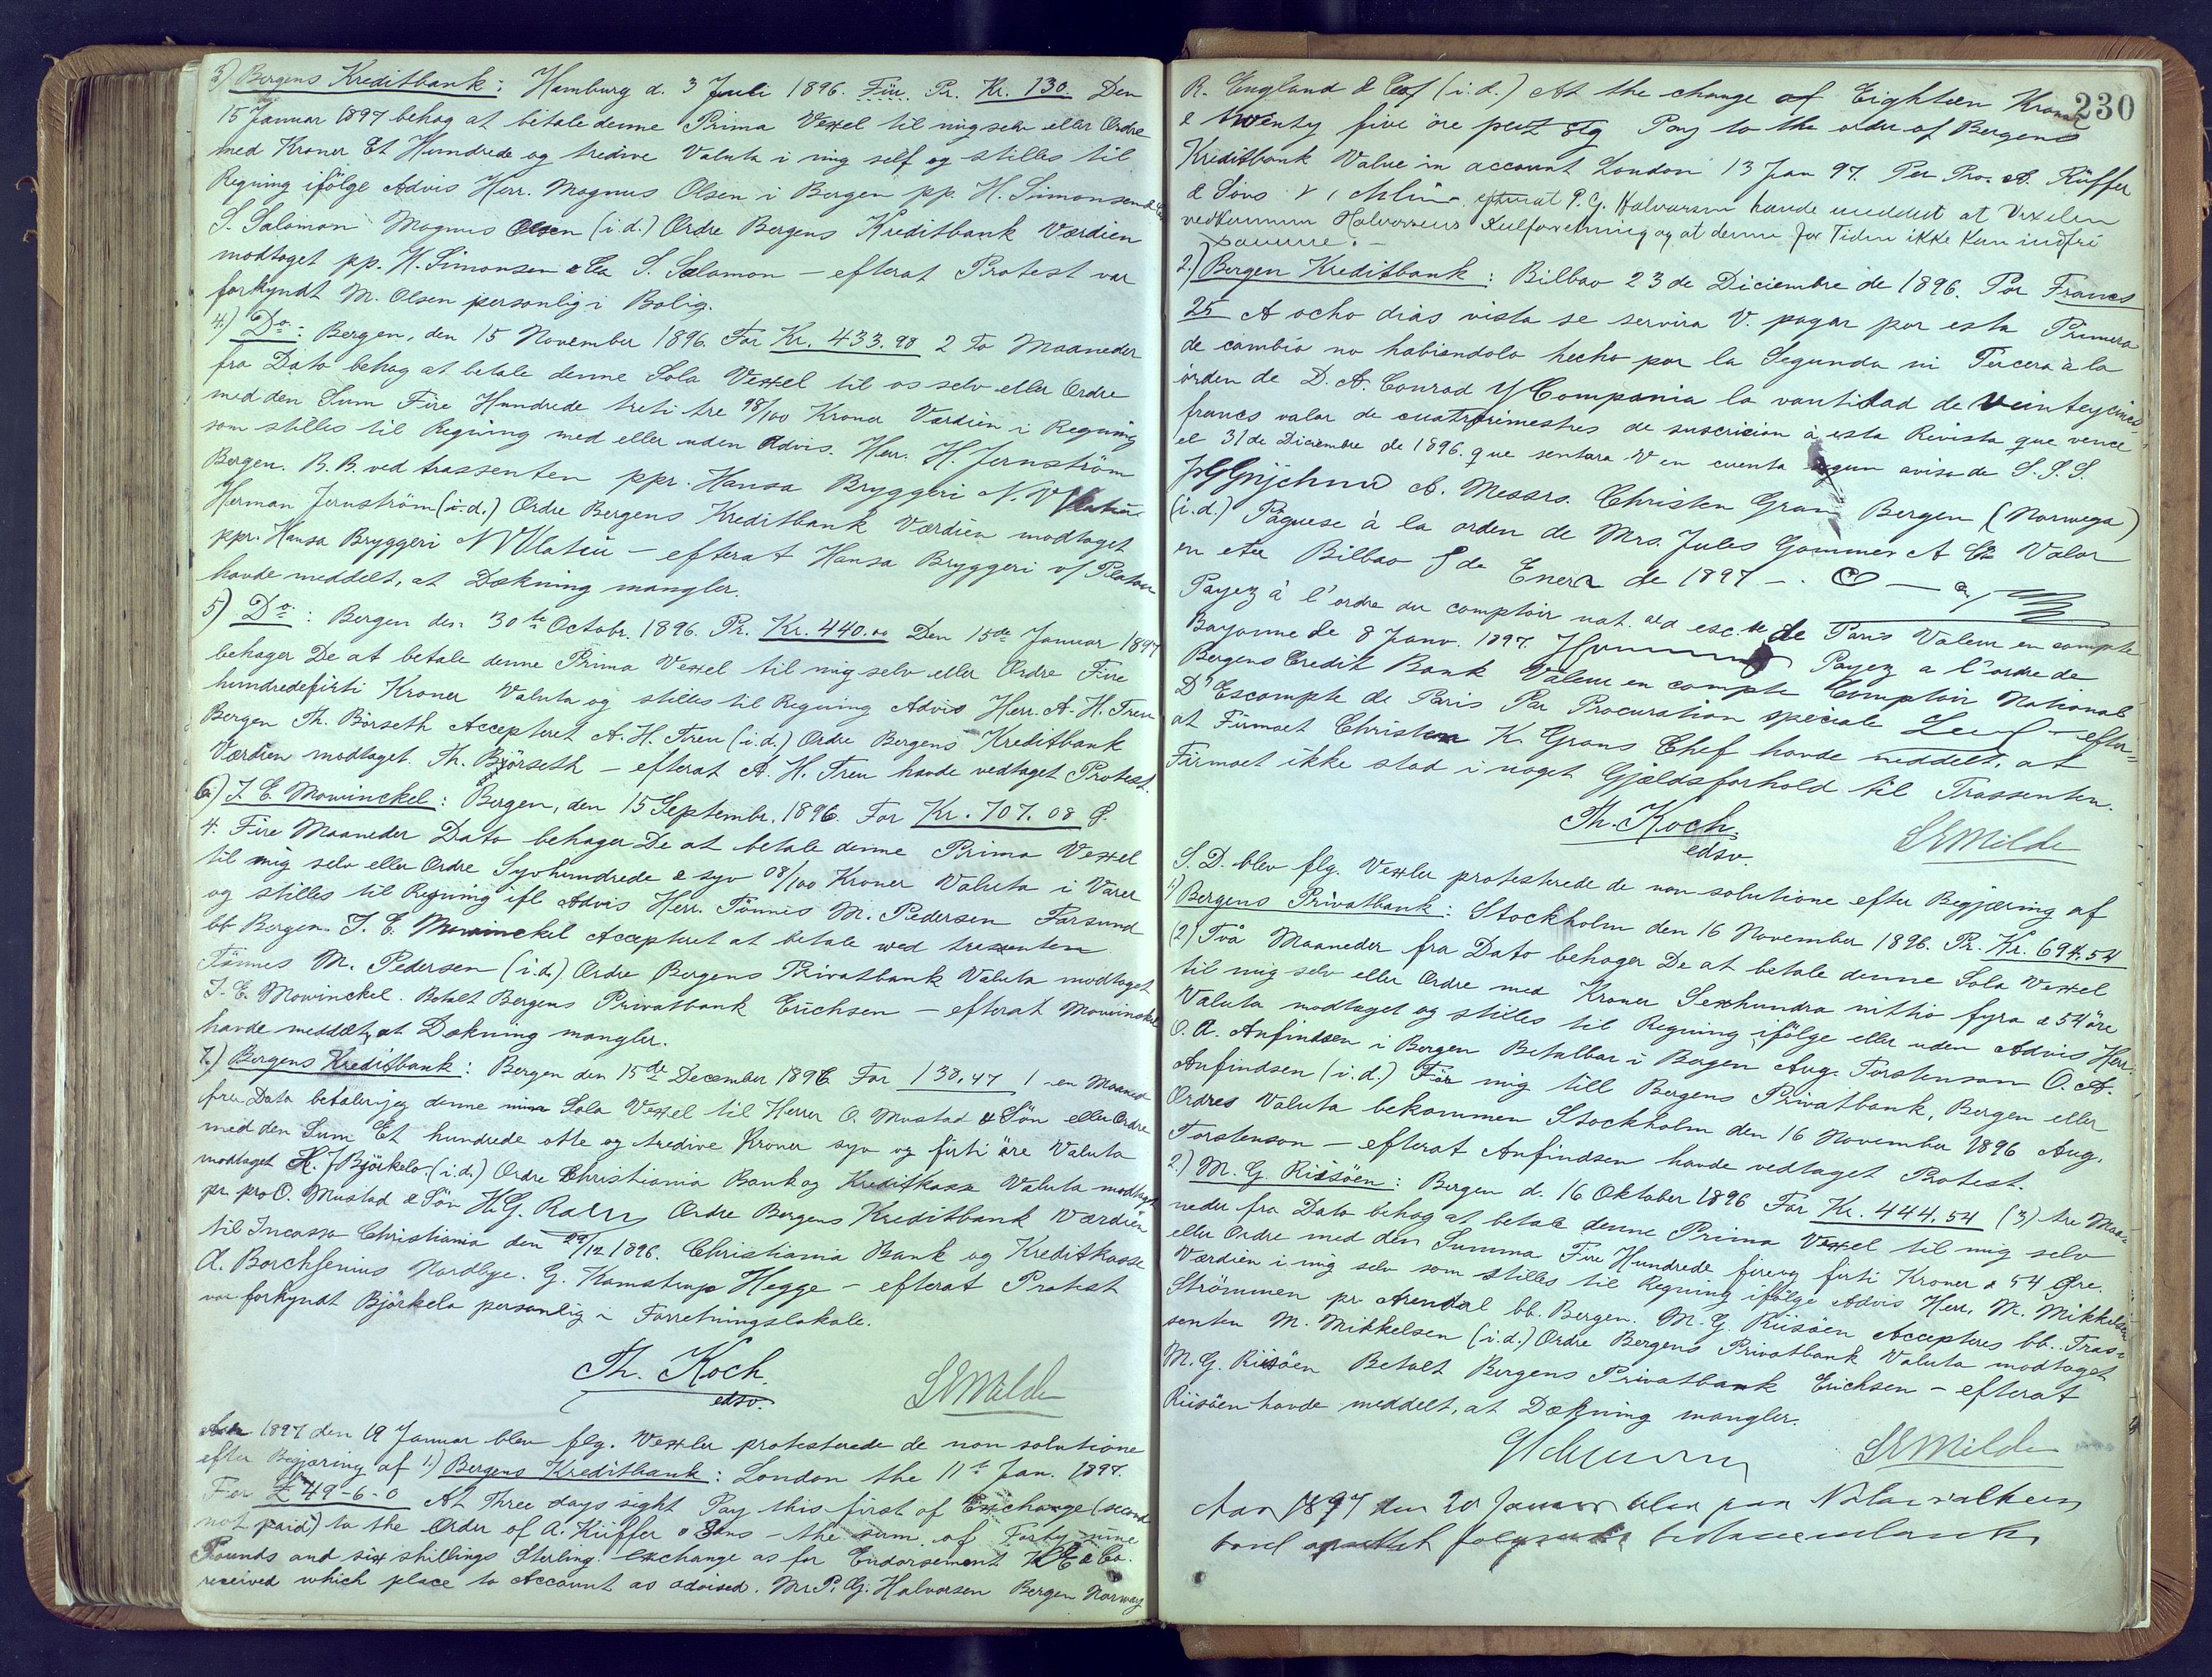 3) Bergens Kreditbank: Hamburg d. 3 Juli 1896. Für Pr. Kr. 130. Den
15 Januar 1897 behag at betale denne Prima Vexel til mig selv eller Ordre
med Kroner Et Hundrede og tredive Valuta i mig self og stilles til
Regning ifölge Advis Herr. Magnus Olsen i Bergen pp. H. Simonsen & Co
S. Salomon Magnus Olsen (i.d.) Ordre Bergens Kreditbank Værdien
modtaget pp. H. Simonsen & Co S. Salomon – efterat Protest var
forkyndt M. Olsen personlig i Bolig.
4.) Do: Bergen, den 15 November 1896. For Kr. 433.98 2 To Maaneder
fra Dato behag at betale denne Sola Vexel til os selv eller Ordre
med den Sum Fire Hundrede treti tre 98/100 Kroner Værdien i Regning
som stilles til Regning med eller uden Advis. Herr. H. Jernström
Bergen. B. B. ved trassenten ppr. Hansa Bryggeri N. W
Herman Jernström (i.d.) Ordre Bergens Kreditbank Værdien modtaget
ppr. Hansa Bryggeri – efterat Hansa Bryggeri v/ Platou
havde meddelt, at Dækning mangler.
5) Do: Bergen den 30te Octobr. 1896. Pr. Kr. 440.00 Den 15de Januar 1897
behager De at betale denne Prima Vexel til mig selv eller Ordre Fire
hundredefirti Kroner Valuta og stilles til Regning Advis Herr. A. H. Treu
Bergen Th. Börseth Accepteret A. H. Treu (i.d.) Ordre Bergens Kreditbank
Værdien modtaget. Th. Björseth – efterat A. H. Treu havde vedtaget Protest.
6) J. E. Mowinckel: Bergen, den 15 Septembr. 1896. For Kr. 707.08 Ø.
4. Fire Maaneder Dato behager De at betale denne Prima Vexel
til mig selv eller Ordre Syvhundrede & syv 08/100 Kroner Valuta i Varer
og stilles til Regning ifl. Advis Herr. Tönnes M. Pedersen Farsund
bb Bergen. J. E. Mowinckel Accepteret at betale ved trassenten
Tönnes M. Pedersen (i.d.) Ordre Bergens Privatbank Valuta modtaget
J. E. Mowinckel. Betalt Bergens Privatbank Erichsen – efterat Mowinckel
havde meddelt, at Dækning mangler.
7.) Bergens Kreditbank: Bergen den 15de December 1896 For 138.47 1 en Maaned
fra Dato betaler jeg denne min Sola Vexel til Herrer O. Mustad & Sön eller Ordre
med den Sum Et hundrede otte og tredive Kroner syv og firti öre Valuta
modtaget H. J. Björkelo (i.d.) Ordre Christiania Bank og Kreditkasse Valuta modtaget
pr. pro O. Mustad & Sön H. G. Ordre Bergens Kreditbank Værdien
til Incasso Christiania den 29/12 1896. Christiania Bank og Kreditkasse
A. Borchsenius Nordbye. G. Kamstrup Hegge – efterat Protest
var forkyndt Björkelo personlig i Forretningslokale.
Th. Koch.
edsv.
SEMilde
Aar 1897 den 19 Januar blev flg. Vexler protesterede de non solutione
efter Begjæring af 1.) Bergens Kreditbank: London the 11th Jan. 1897.
For £ 49-6-0 At Three days sight Pay this first of Exchange (second
not paid) to the Order of A. Küffer & Sons – the sum of Forty nine
Pounds and six shillings Sterling. exchange as for Endorsement & Co.
received which place to Account as advised. Mr P. G. Halvorsen Bergen Norway
230
R. England & Co (i.d.) At the change of Eighteen Kroner
& twenty five öre per £ stg Pay to the order of Bergens
Kreditbank Value in account London 13 Jan 97. Per Pro. A. Küffer
& Sons efterat P. G. Halvorsen havde meddelt at Vexelen
vedkommer Halvorsens Kulforretning og at denne for Tiden ikke kan indfri
samme. –
2.) Bergen Kreditbank: Bilbao 23 de Diciembre de 1896. Por Francs
25 A ocho dias vista se servira V. pagar por esta Primera
de cambio no habiendolo hecho por la Segunda ni Tercera à la
órden de D. A. Conrad y Compania la cantidad de veinteycinco
francs valor de cuatrotrimestres de suscricion à esta Revista que vence
el 31 de Diciembre de 1896. que sentara V en cuenta segun aviso de S. S. S.
A. Messrs. Christen Gran Bergen (Norwega)
(i.d.) Páguese à la orden de Mrs. Jules Gommes A Co Valor
en cta Bilbao 8 de Enero de 1897 –
Payez à l'ordre du comptoir nat. al d esc.te de Paris Valeur en compte
Bayonne le 8 Janv. 1897. Payez a l'ordre de
Bergens Credit Bank Valeur en compte Comptoir National
D'Escompte de Paris Par Procuration spéciale – efter-
at Firmaet Christen K. Grans Chef havde meddelt, at
Firmaet ikke stod i noget Gjældsforhold til Trassenten.
Th. Koch.
edsv.
SEMilde
S. D. blev flg. Vexler protesterede de non solutione efter Begjæring af
1) Bergens Privatbank: Stockholm den 16 November 1896. Pr. Kr. 694.54
(2) Två Maaneder fra Dato behager De at betale denne Sola Vexel
til mig selv eller Ordre med Kroner Sexhundra nittio fyra & 54 öre
Valuta modtaget og stilles til Regning ifölge eller uden Advis Herr.
O. A. Anfindsen i Bergen Betalbar i Bergen Aug. Torstenson O. A.
Anfindsen (i.d.) För mig till Bergens Privatbank, Bergen eller
Ordres Valuta bekommen Stockholm den 16 November 1896 Aug.
Torstenson – efterat Anfindsen havde vedtaget Protest.
2.) M. G. Riisöen: Bergen d. 16 Oktober 1896 For Kr. 444.54 (3) tre Maa-
neder fra Dato behag at betale denne Prima Vexel til mig selv
eller Ordre med den Summa Fire Hundrede fireog firti Kroner & 54 Øre.
Værdien i mig selv som stilles til Regning ifölge Advis Herr. M. Mikkelsen
Strömmen pr. Arendal bb. Bergen. M. G. Riisöen Accepteres bb. Tras-
senten M. Mikkelsen (i.d.) Ordre Bergens Privatbank Valuta modtaget
M. G. Riisöen Betalt Bergens Privatbank Erichsen – efterat
Riisöen havde meddelt, at Dækning mangler.
SEMilde
Aar 1897 den 20 Januar blev paa